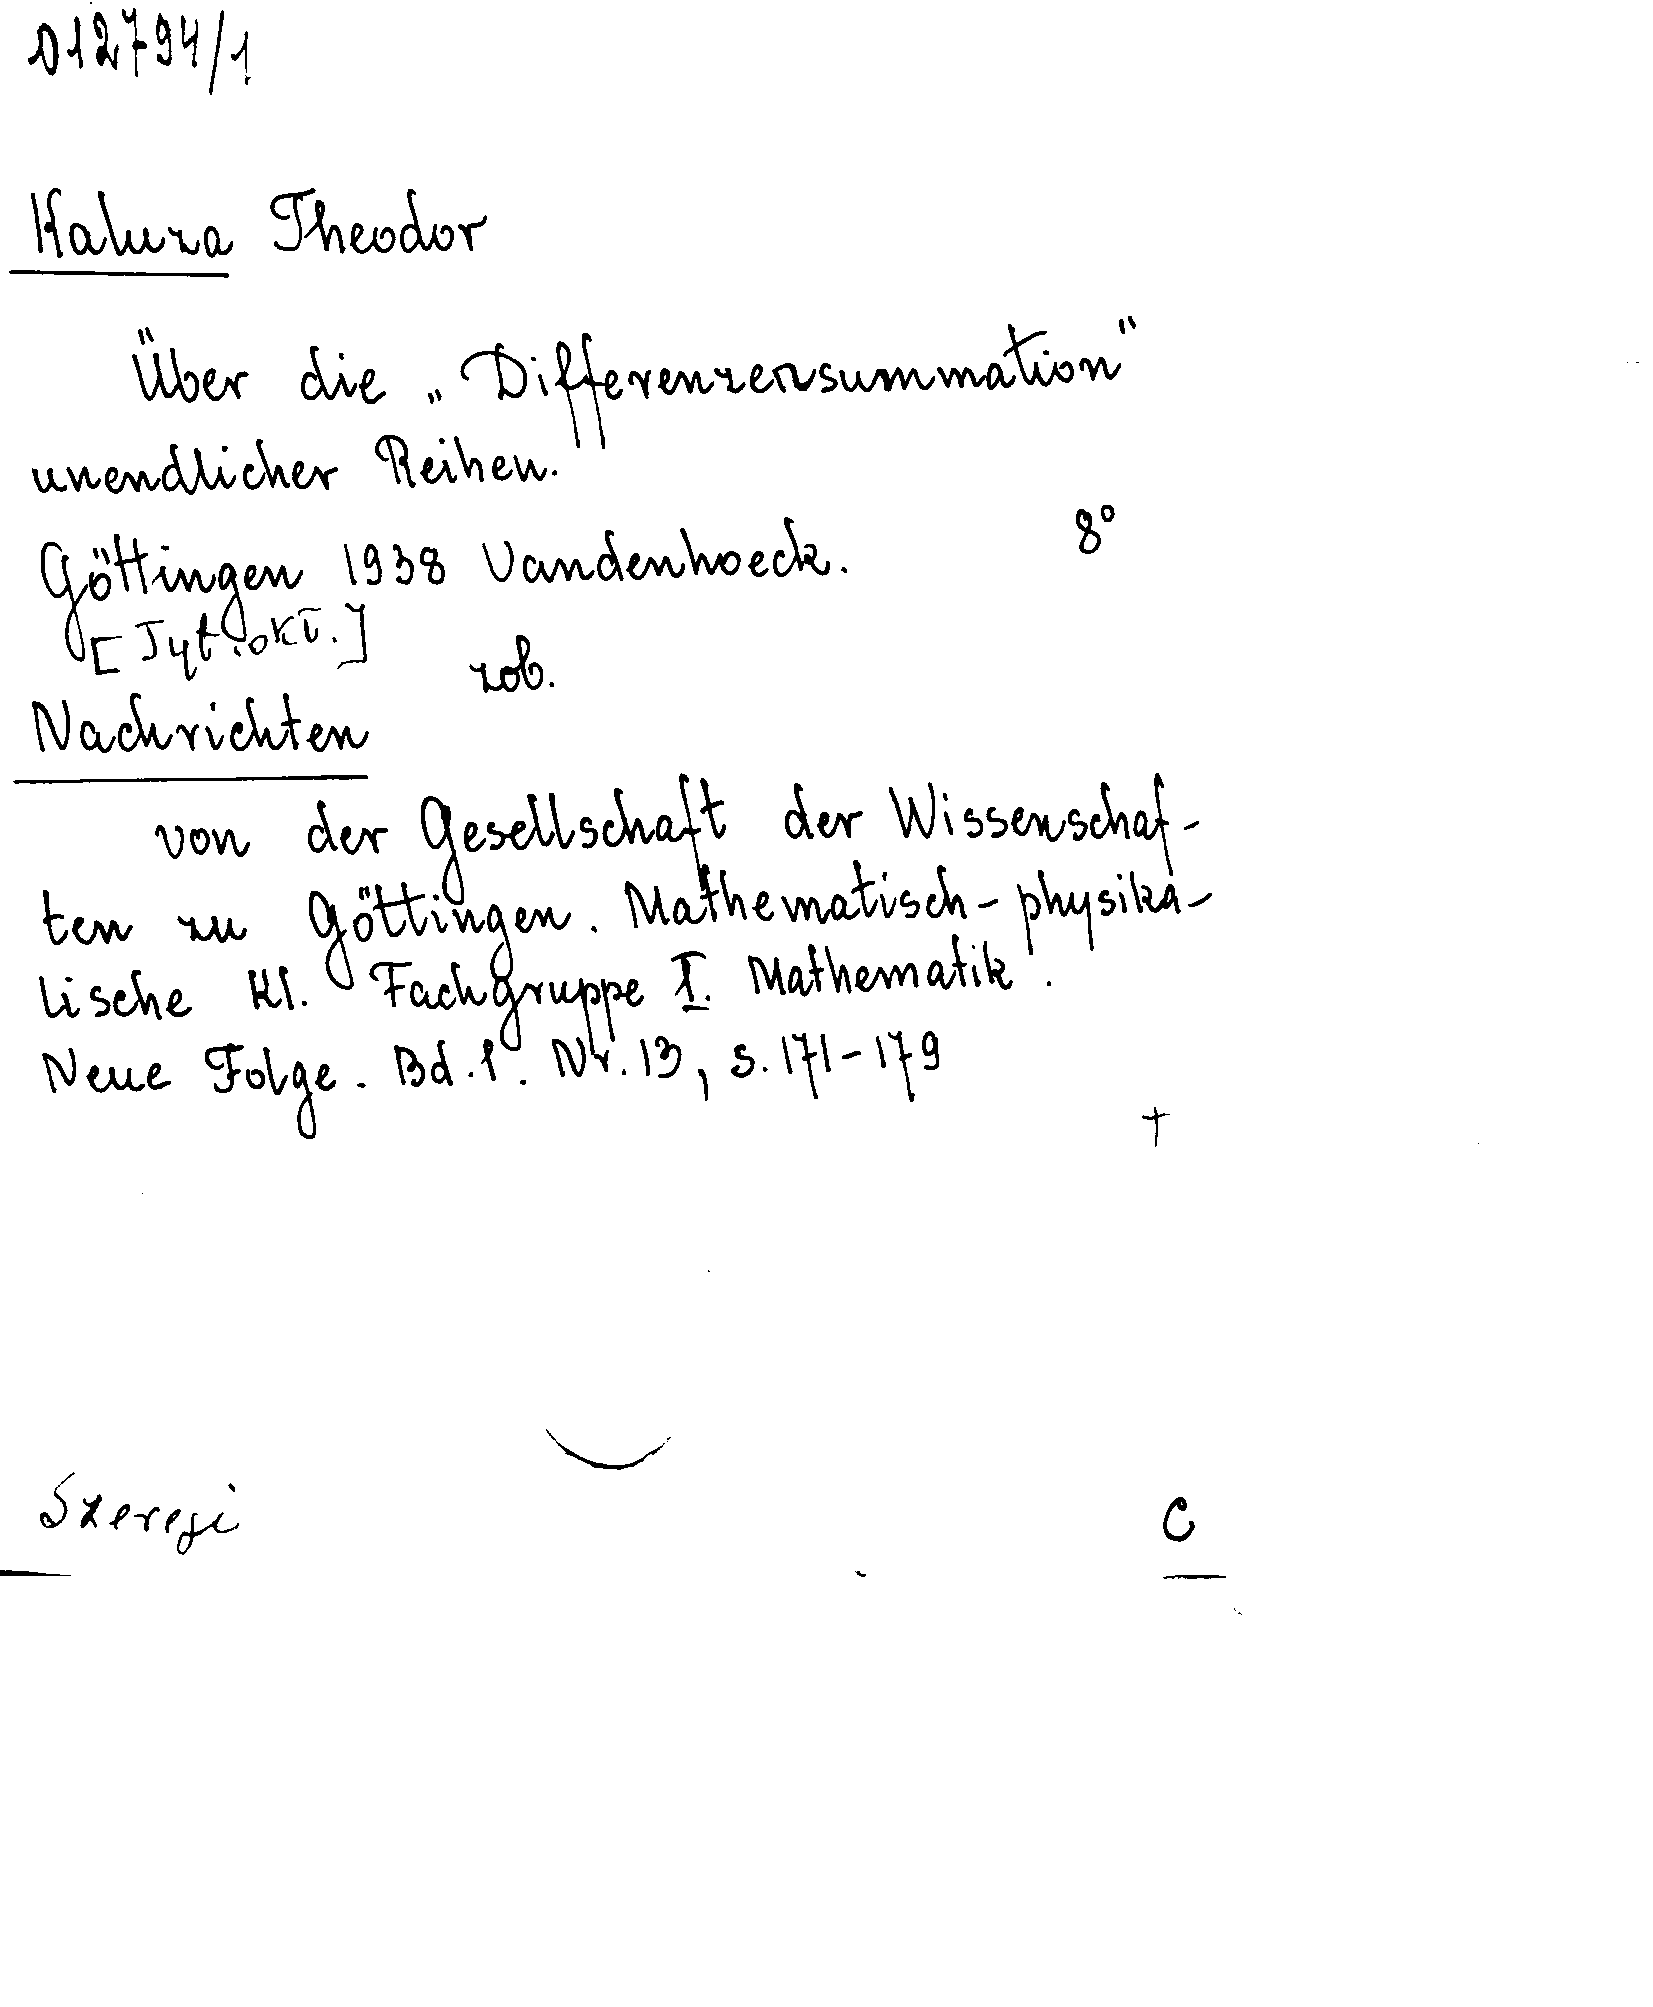 012794/1
Kaluza Theodor
Über die „Differenzensummation"
unendlicher Reihen.
Göttingen 1938 Vandenhoeck. 8°
[Tyt. okł.]
zob.
Nachrichten
von der Gesellschaft der Wissenschaf-
ten zu Göttingen. Mathematisch-physika-
lische Kl. Fachgruppe I. Mathematik.
Neue Folge. Bd. 1. Nr. 13, s. 171-179
†
Szeregi C